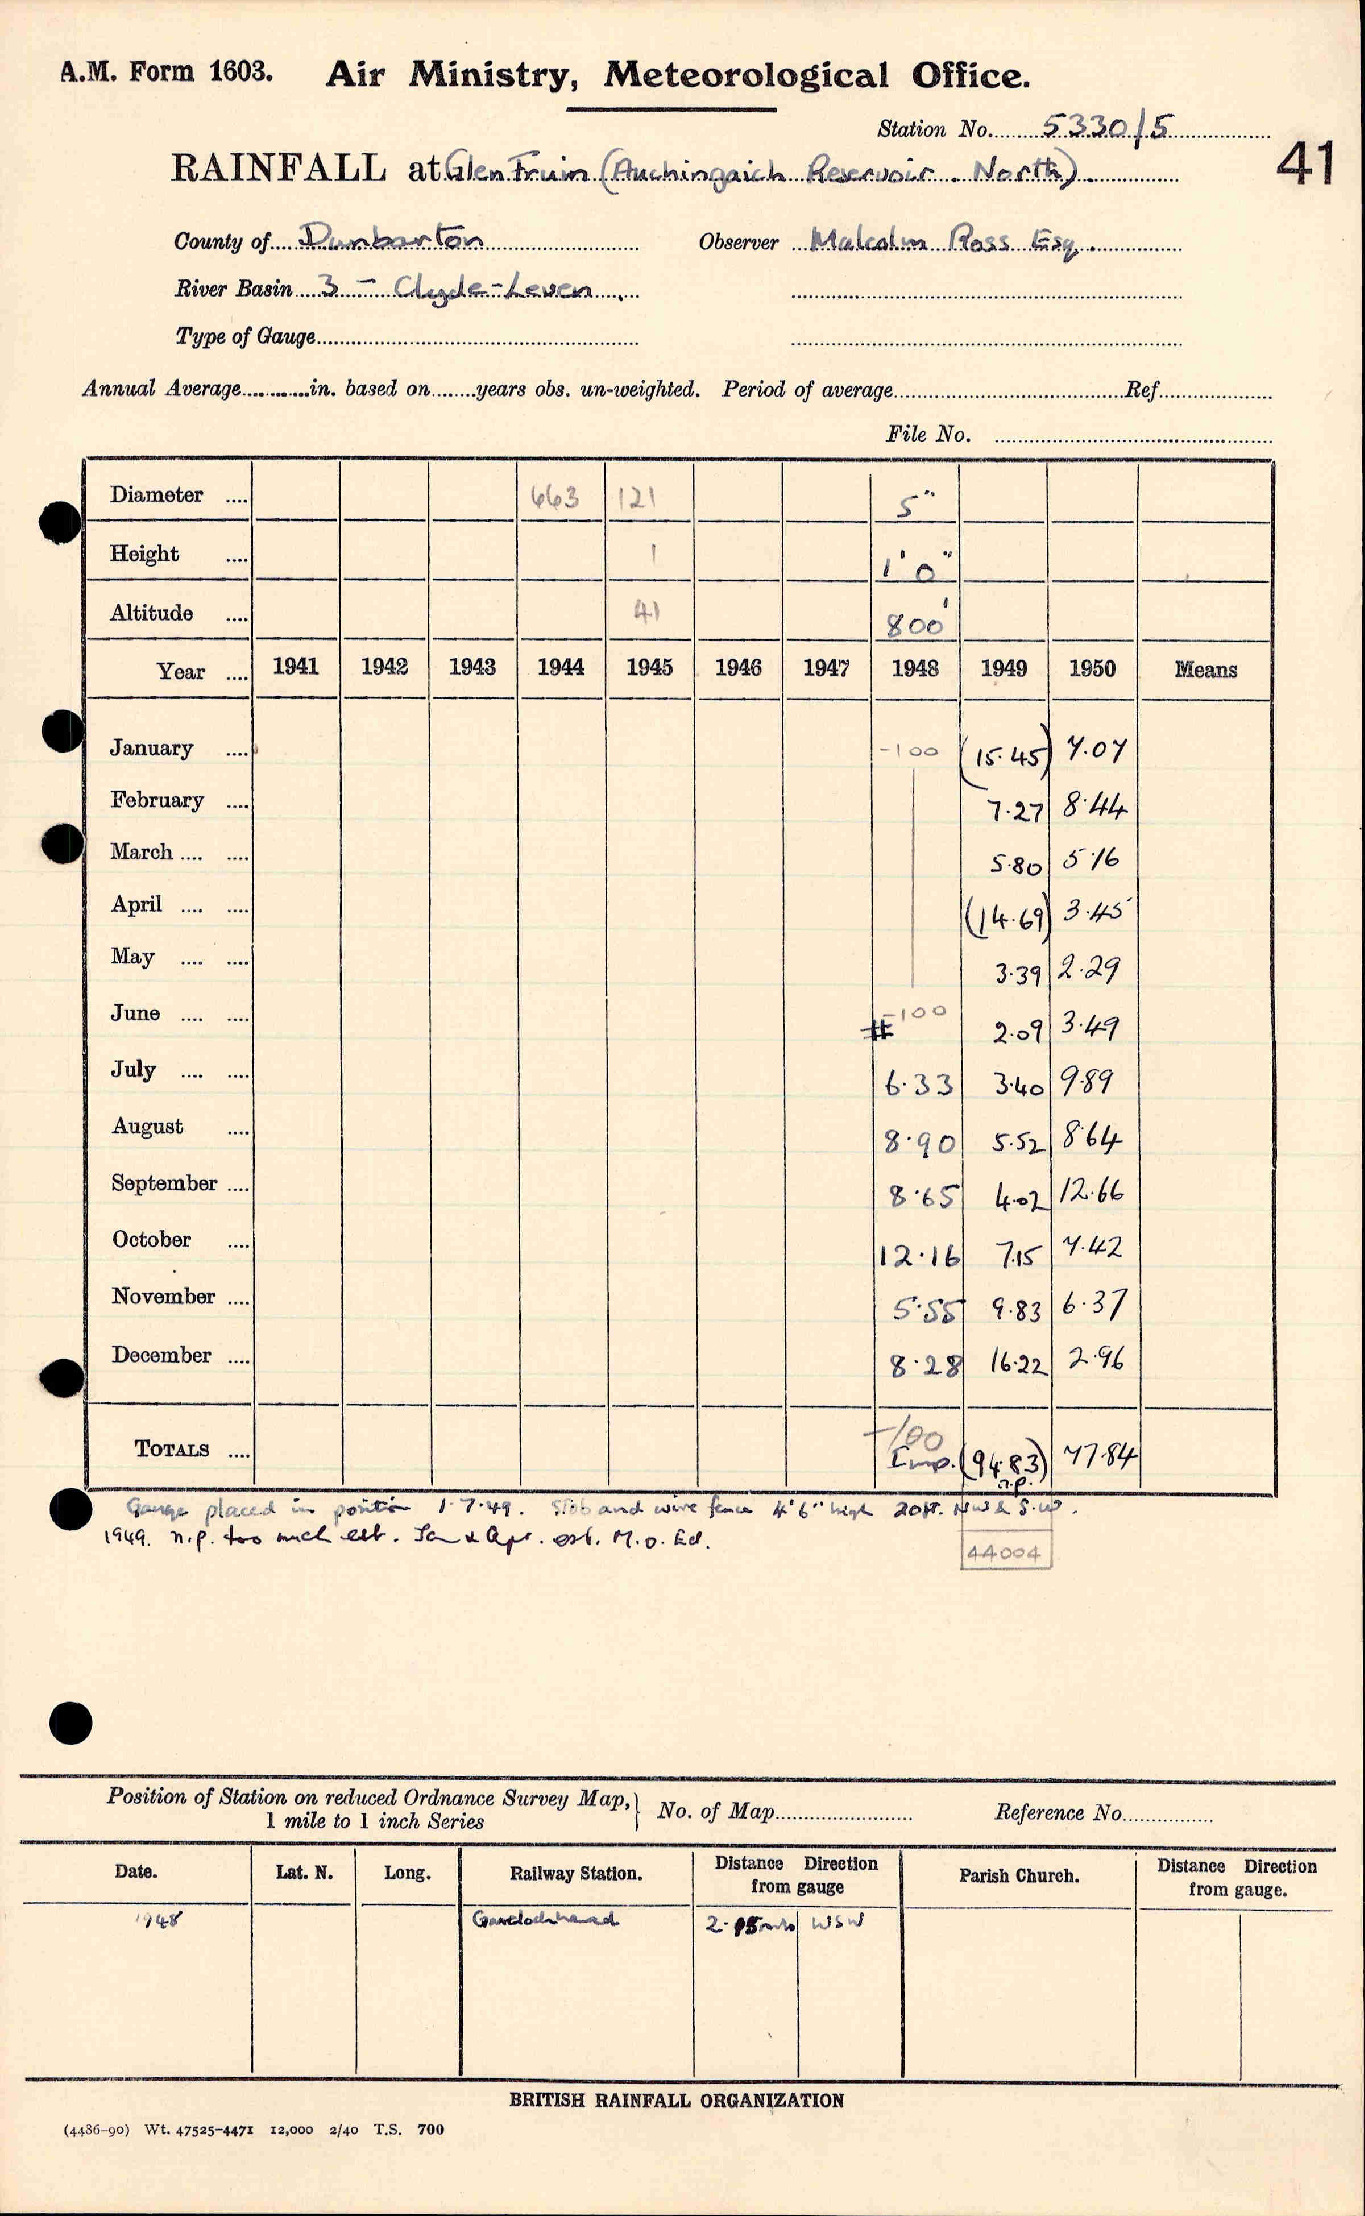 A.M. Form 1603. Air Ministry, Meteorological Office.
Station No. 5330/5
41
RAINFALL at Glen Fruin (Auchingaich Reservoir. North).
County of Dunbarton Observer Malcolm Ross Esq.
River Basin 3 - Clyde-Leven
Type of Gauge
Annual Average in. based on years obs. un-weighted. Period of average Ref
File No.
Diameter 663 121 5"
Height 1 1' 0"
Altitude 41 800'
Year 1941 1942 1943 1944 1945 1946 1947 1948 1949 1950 Means
January -100 (15.45) 7.07
February 7.27 8.44
March 5.80 5.16
April (14.69) 3.45
May 3.39 2.29
June -100 2.09 3.49
July 6.33 3.40 9.89
August 8.90 5.52 8.64
September 8.65 4.02 12.66
October 12.16 7.15 7.42
November 5.55 9.83 6.37
December 8.28 16.22 2.96
-100
TOTALS Imp. (94.83) 77.84
n.p.
Gauge placed in position 1.7.49. Stob and wire fence 4'6" high 20ft. NW & S.W.
1949. n.p. too much est. Jan & Apr. est. M.O. Ed.
44004
Position of Station on reduced Ordnance Survey Map, 1 mile to 1 inch Series No. of Map Reference No.
Date. Lat. N. Long. Railway Station. Distance Direction from gauge Parish Church. Distance Direction from gauge.
1948 Garelochhead WSW
BRITISH RAINFALL ORGANIZATION
(4486-90) Wt. 47525-4471 12,000 2/40 T.S. 700